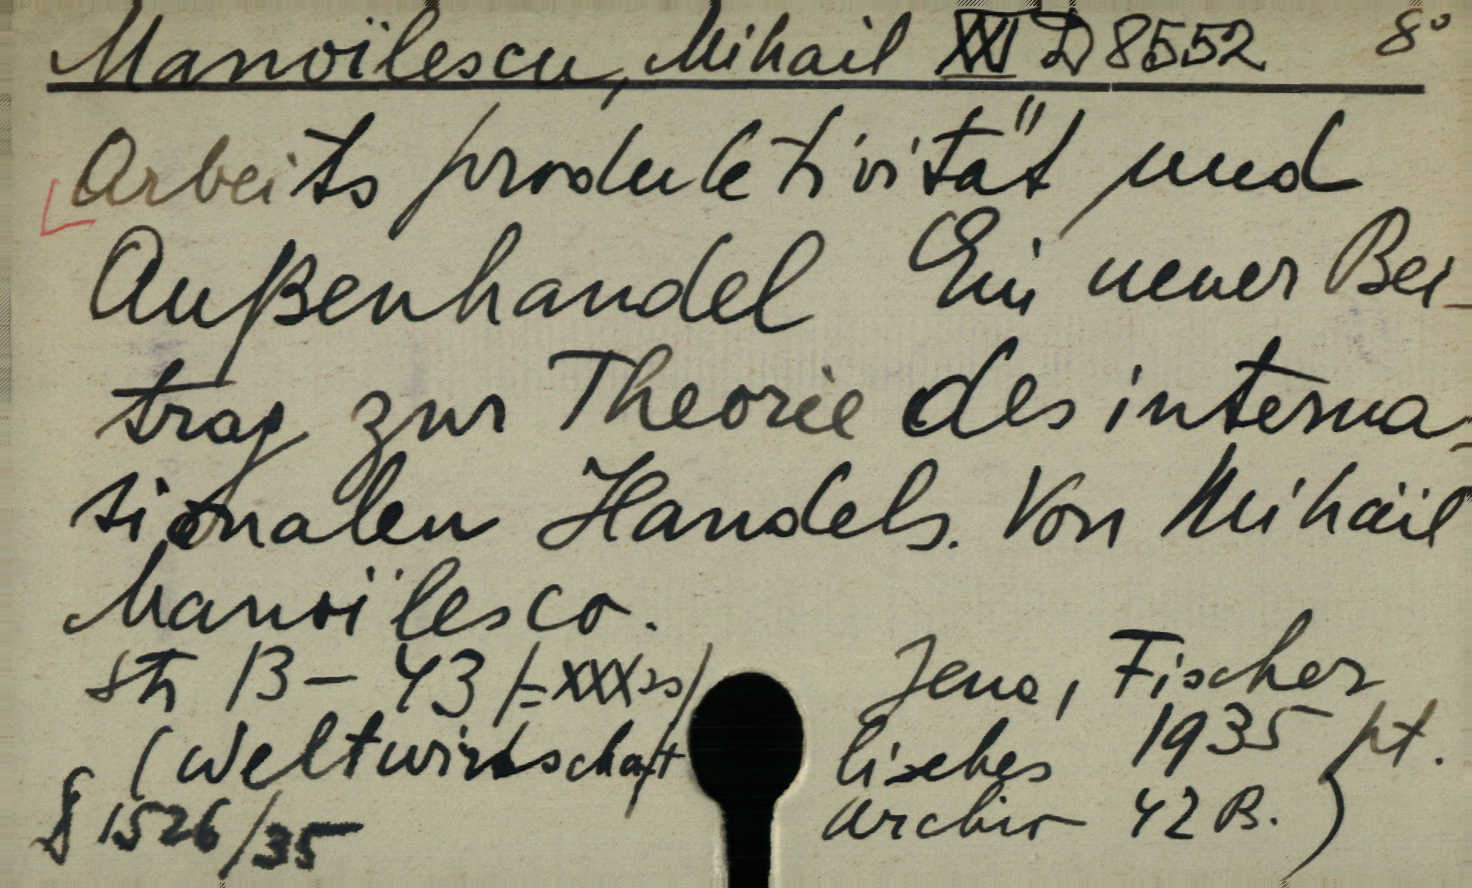 Manoïlescu, Mihail XXI D 8552 8°
Arbeitsproduktivität und
Außenhandel Ein neuer Bei-
trag zur Theorie des interna-
tionalen Handels. Von Mihäil
Manoïlesco.
str 13 – 43 /= XXX /
Jena, Fischer
1935 pt.
(Weltwirtschaftliches
archiv 42 B.)
§ 1526/35